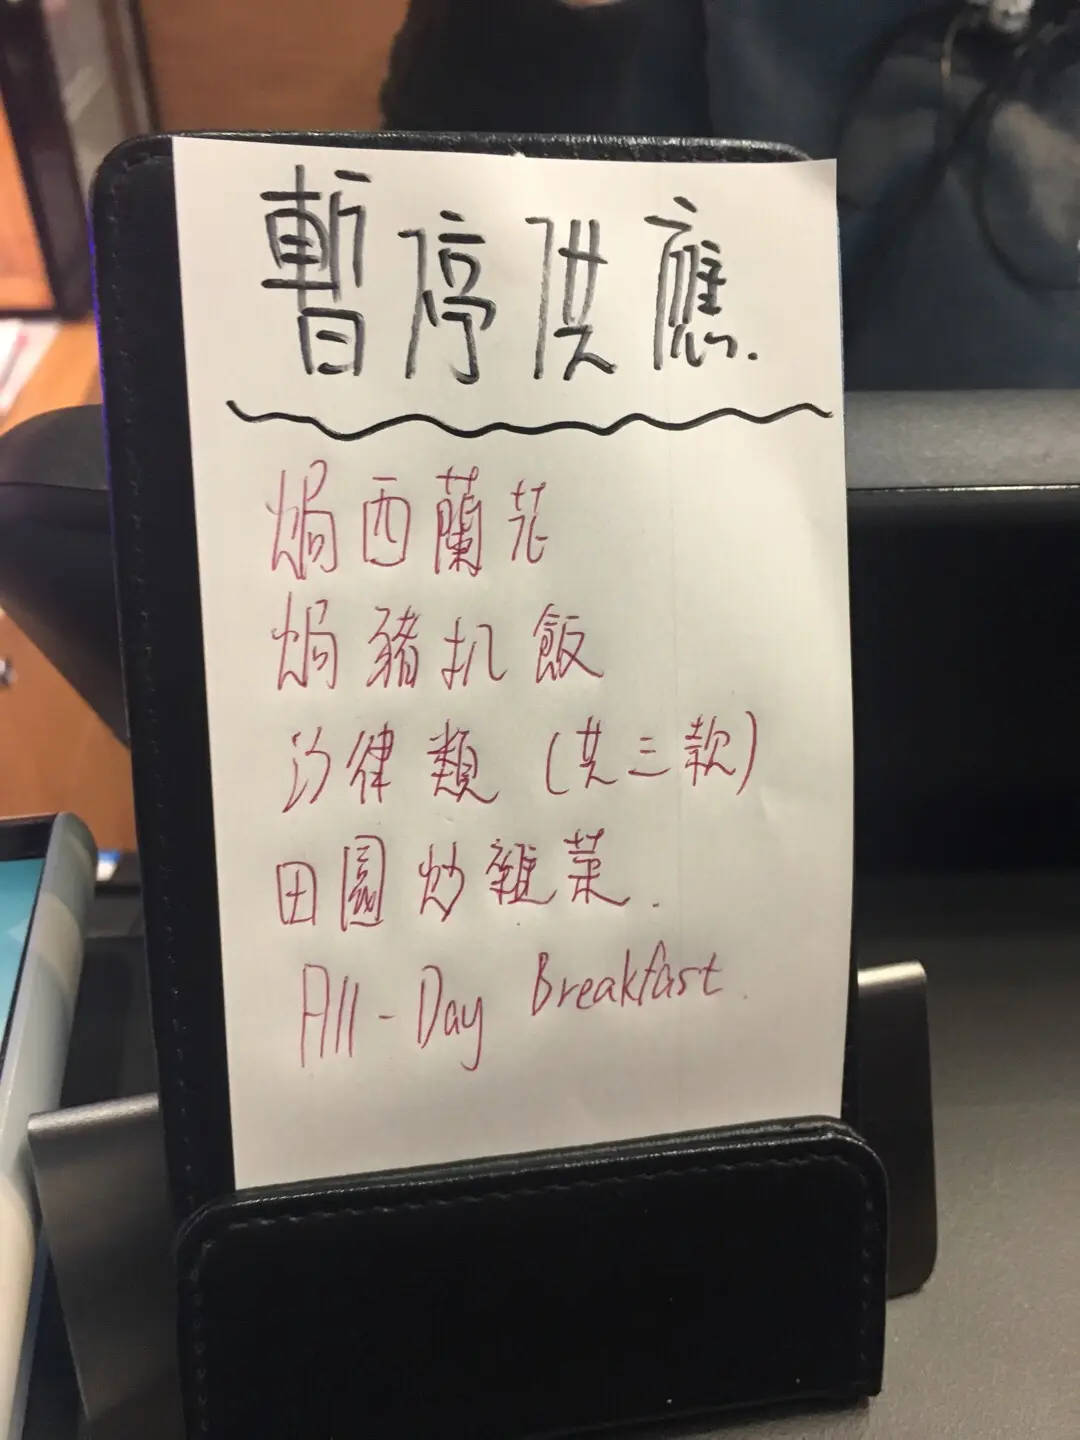 暫停供應.
焗西蘭花
焗豬扒飯
沙律類（共三款）
田園炒雜菜.
All-Day Breakfast.